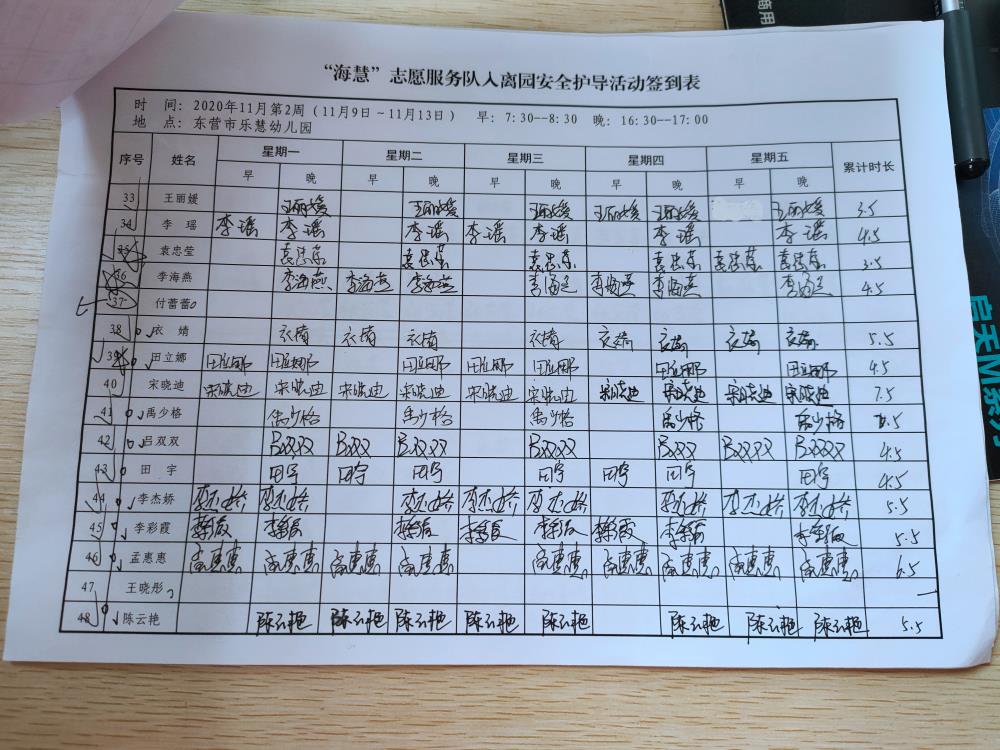 “海慧”志愿服务队入离园安全护导活动签到表
时 间: 2020年11月第2周（11月9日～11月13日） 早: 7:30--8:30 晚: 16:30--17:00
地 点: 东营市乐慧幼儿园
序号 姓名 星期一 星期二 星期三 星期四 星期五 累计时长
早 晚 早 晚 早 晚 早 晚 早 晚
33 王丽媛 王丽媛 王丽媛 王丽媛 王丽媛 王丽媛 王丽媛 3.5
34 李 瑶 李瑶 李瑶 李瑶 李瑶 李瑶 李瑶 李瑶 4.5
35 袁忠莹 袁忠莹 袁忠莹 袁忠莹 袁忠莹 袁忠莹 袁忠莹 3.5
36 李海燕 李海燕 李海燕 李海燕 李海燕 李海燕 李海燕 李海燕 4.5
37 付蕾蕾
38 衣 婧 衣婧 衣婧 衣婧 衣婧 衣婧 衣婧 衣婧 衣婧 5.5
39 田立娜 田立娜 田立娜 田立娜 田立娜 田立娜 田立娜 田立娜 4.5
40 宋晓迪 宋晓迪 宋晓迪 宋晓迪 宋晓迪 宋晓迪 宋晓迪 宋晓迪 宋晓迪 宋晓迪 宋晓迪 7.5
41 禹少格 禹少格 禹少格 禹少格 禹少格 禹少格 .5
42 吕双双 吕双双 吕双双 吕双双 吕双双 吕双双 吕双双 吕双双 4.5
43 田 宇 田宇 田宇 田宇 田宇 田宇 田宇 田宇 4.5
44 李杰娇 李杰娇 李杰娇 李杰娇 李杰娇 李杰娇 李杰娇 李杰娇 李杰娇 5.5
45 李彩霞 李彩霞 李彩霞 李彩霞 李彩霞 李彩霞 李彩霞 李彩霞 李彩霞 5.5
46 孟惠惠 孟惠惠 孟惠惠 孟惠惠 孟惠惠 孟惠惠 孟惠惠 孟惠惠 孟惠惠 孟惠惠 6.5
47 王晓彤
48 陈云艳 陈云艳 陈云艳 陈云艳 陈云艳 陈云艳 陈云艳 陈云艳 陈云艳 5.5